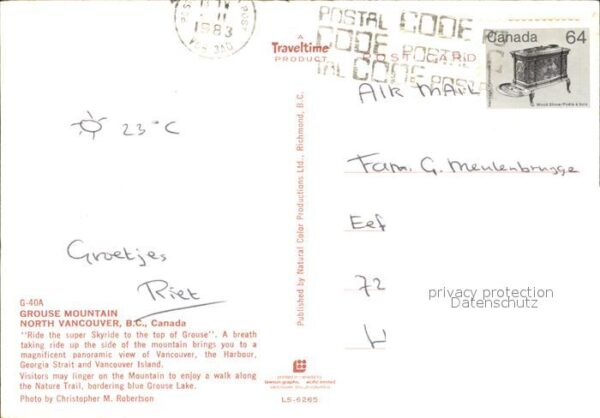 POSTAL CODE
CODE POSTAL
CODE
11
1983
Canada 64
Wood Stove/Poêle à bois
A
Traveltime
PRODUCT
POST CARD
AIR MAIL
☼ 23°C
Fam. G. Meulenbrugge
Eef
72
privacy protection
Datenschutz
Groetjes
Riet
Published by Natural Color Productions Ltd., Richmond, B.C.
G-40A
GROUSE MOUNTAIN
NORTH VANCOUVER, B.C., Canada
"Ride the super Skyride to the top of Grouse". A breath
taking ride up the side of the mountain brings you to a
magnificent panoramic view of Vancouver, the Harbour,
Georgia Strait and Vancouver Island.
Visitors may linger on the Mountain to enjoy a walk along
the Nature Trail, bordering blue Grouse Lake.
Photo by Christopher M. Robertson
LS-6265